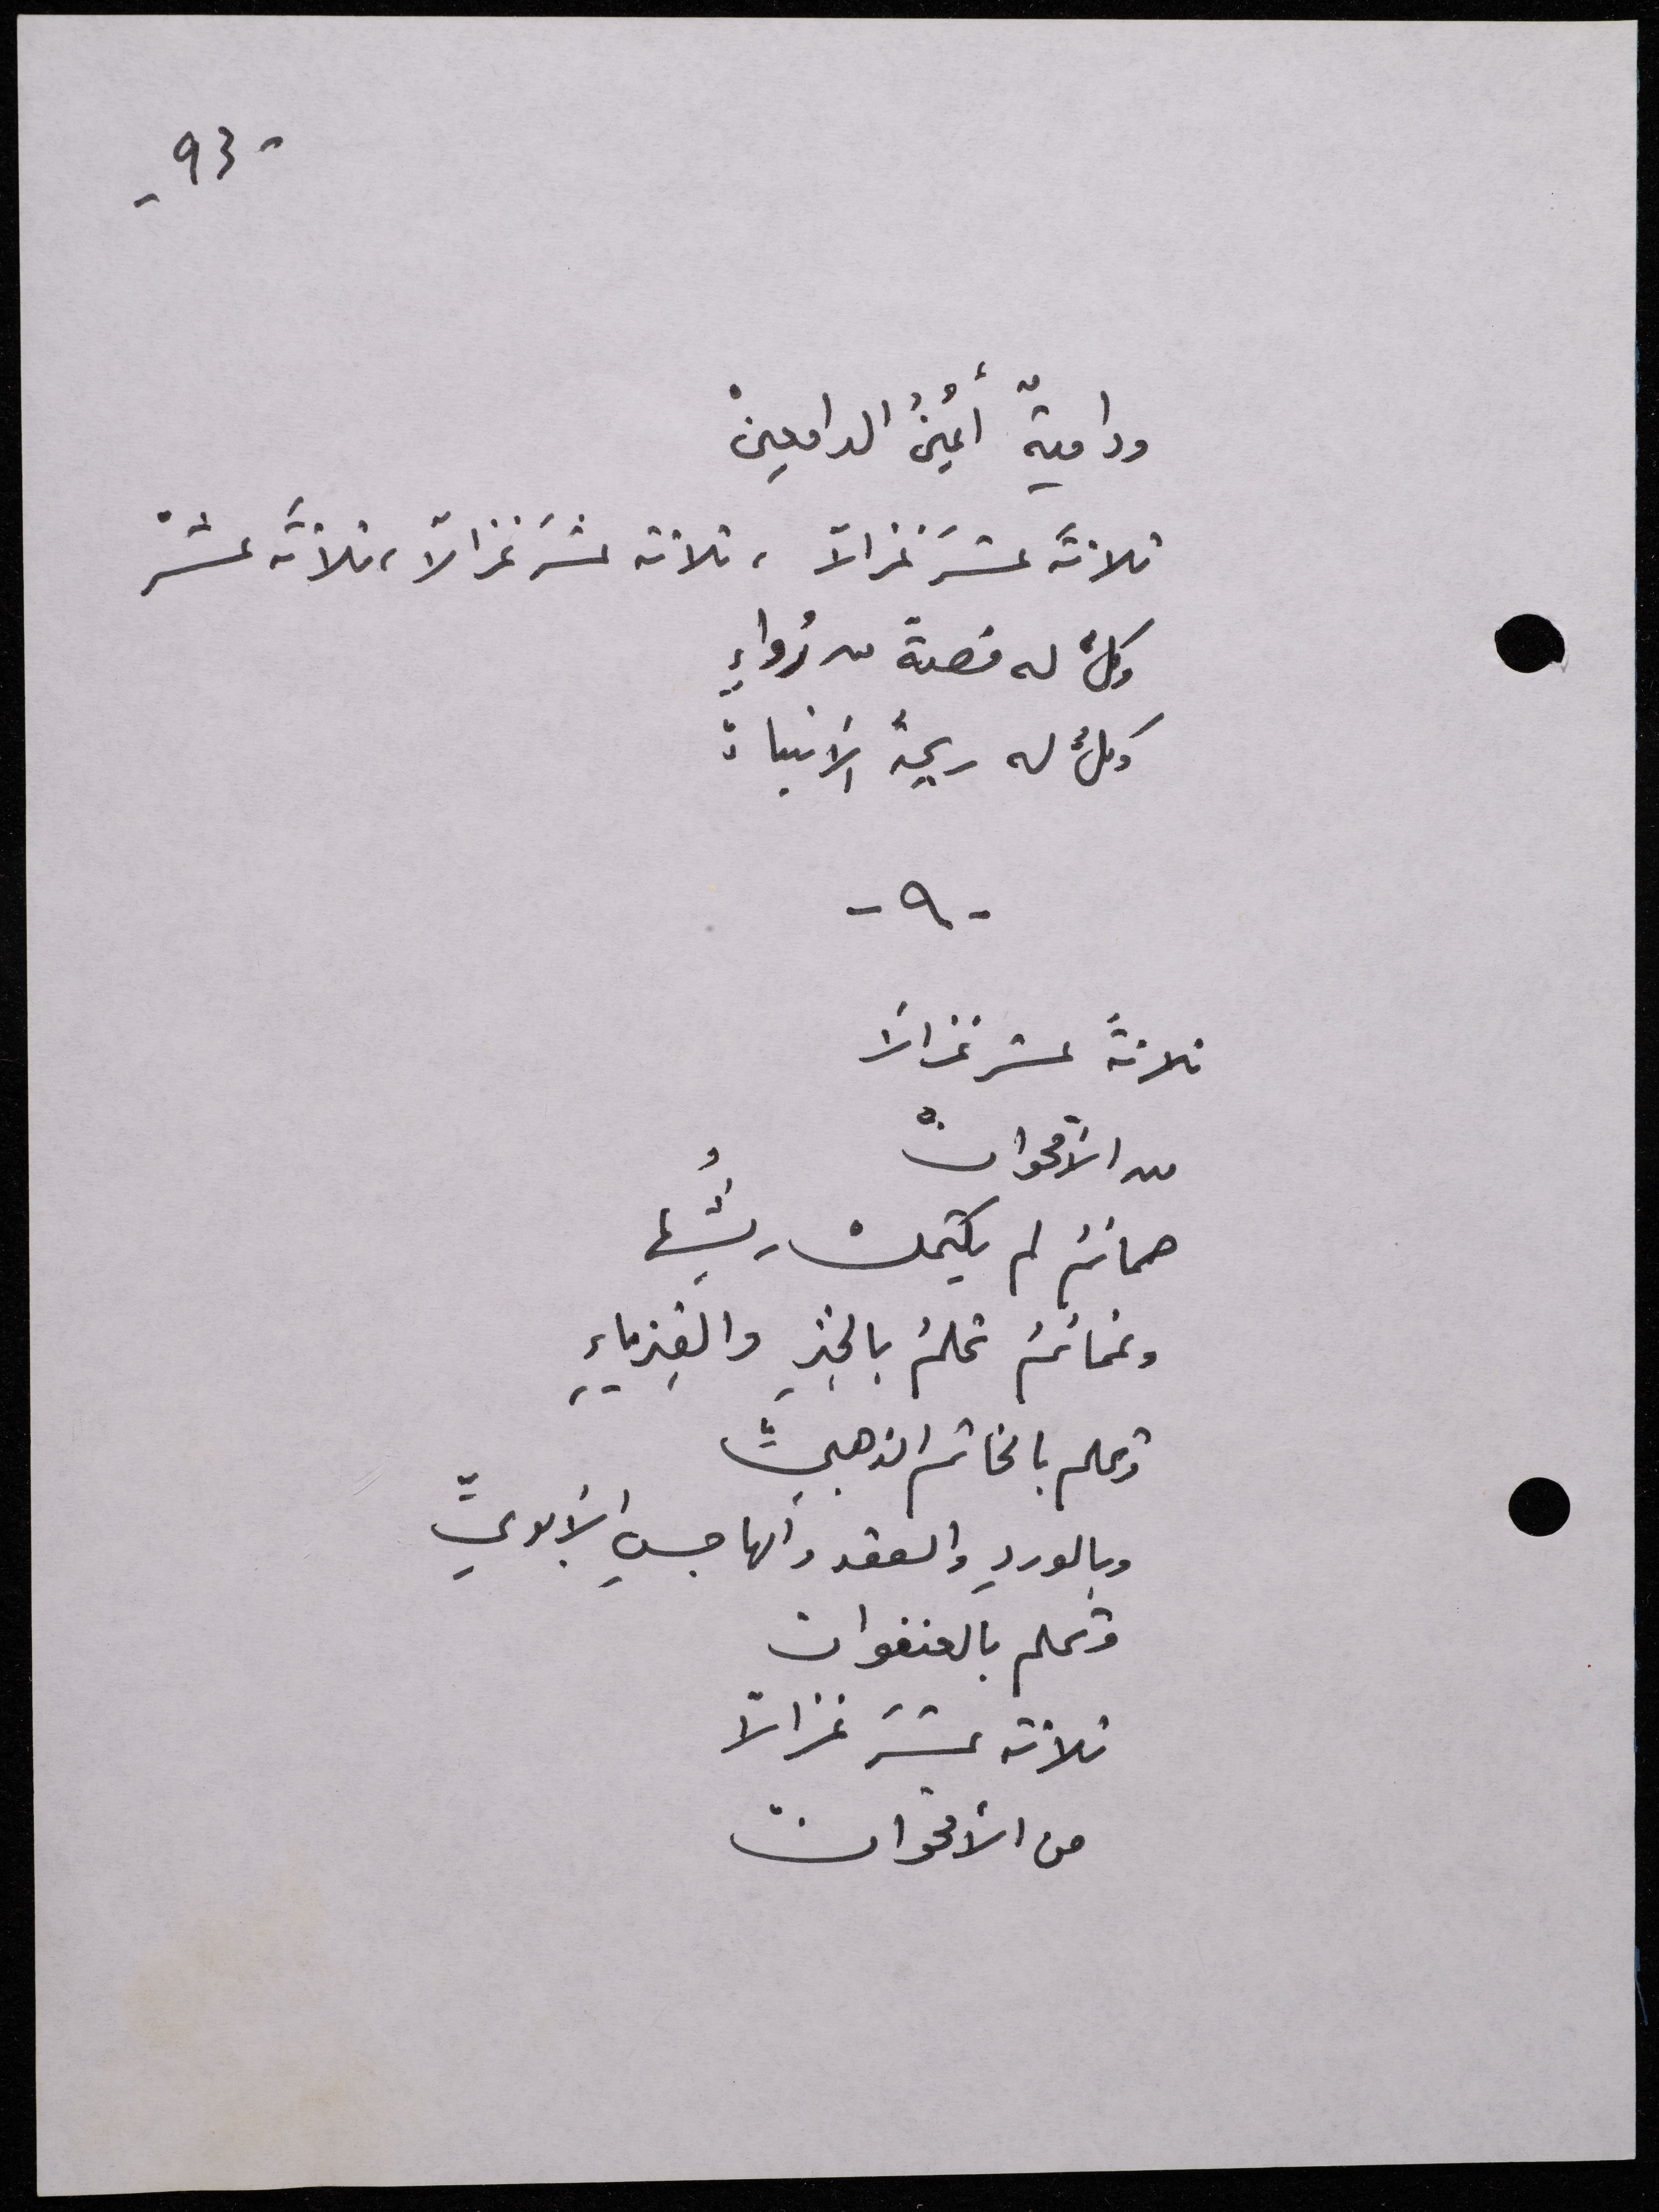 - 93 -
وداميةٌ أعينُ الدامعينْ
ثلاثةَ عشرَ غزالاً ، ثلاثة عشرَ غزالاً ، ثلاثةَ عشرْ
وكلٌّ له قصة من رُواءٍ
وكلٌّ له ريحةُ الأنبياءْ
- ٩ -
ثلاثةَ عشر غزالاً
من الأقحوانْ
حمائمُ لم يكتملْ ريشُها
وغمائمُ تحلمُ بالخبزِ والفيزياءِ
وتحلم بالخاتم الذهبيِّ
وبالوردِ والعقد والهاجسِ الأبويِّ
وتحلم بالعنفوان
ثلاثة عشرَ غزالاً
من الأقحوانْ